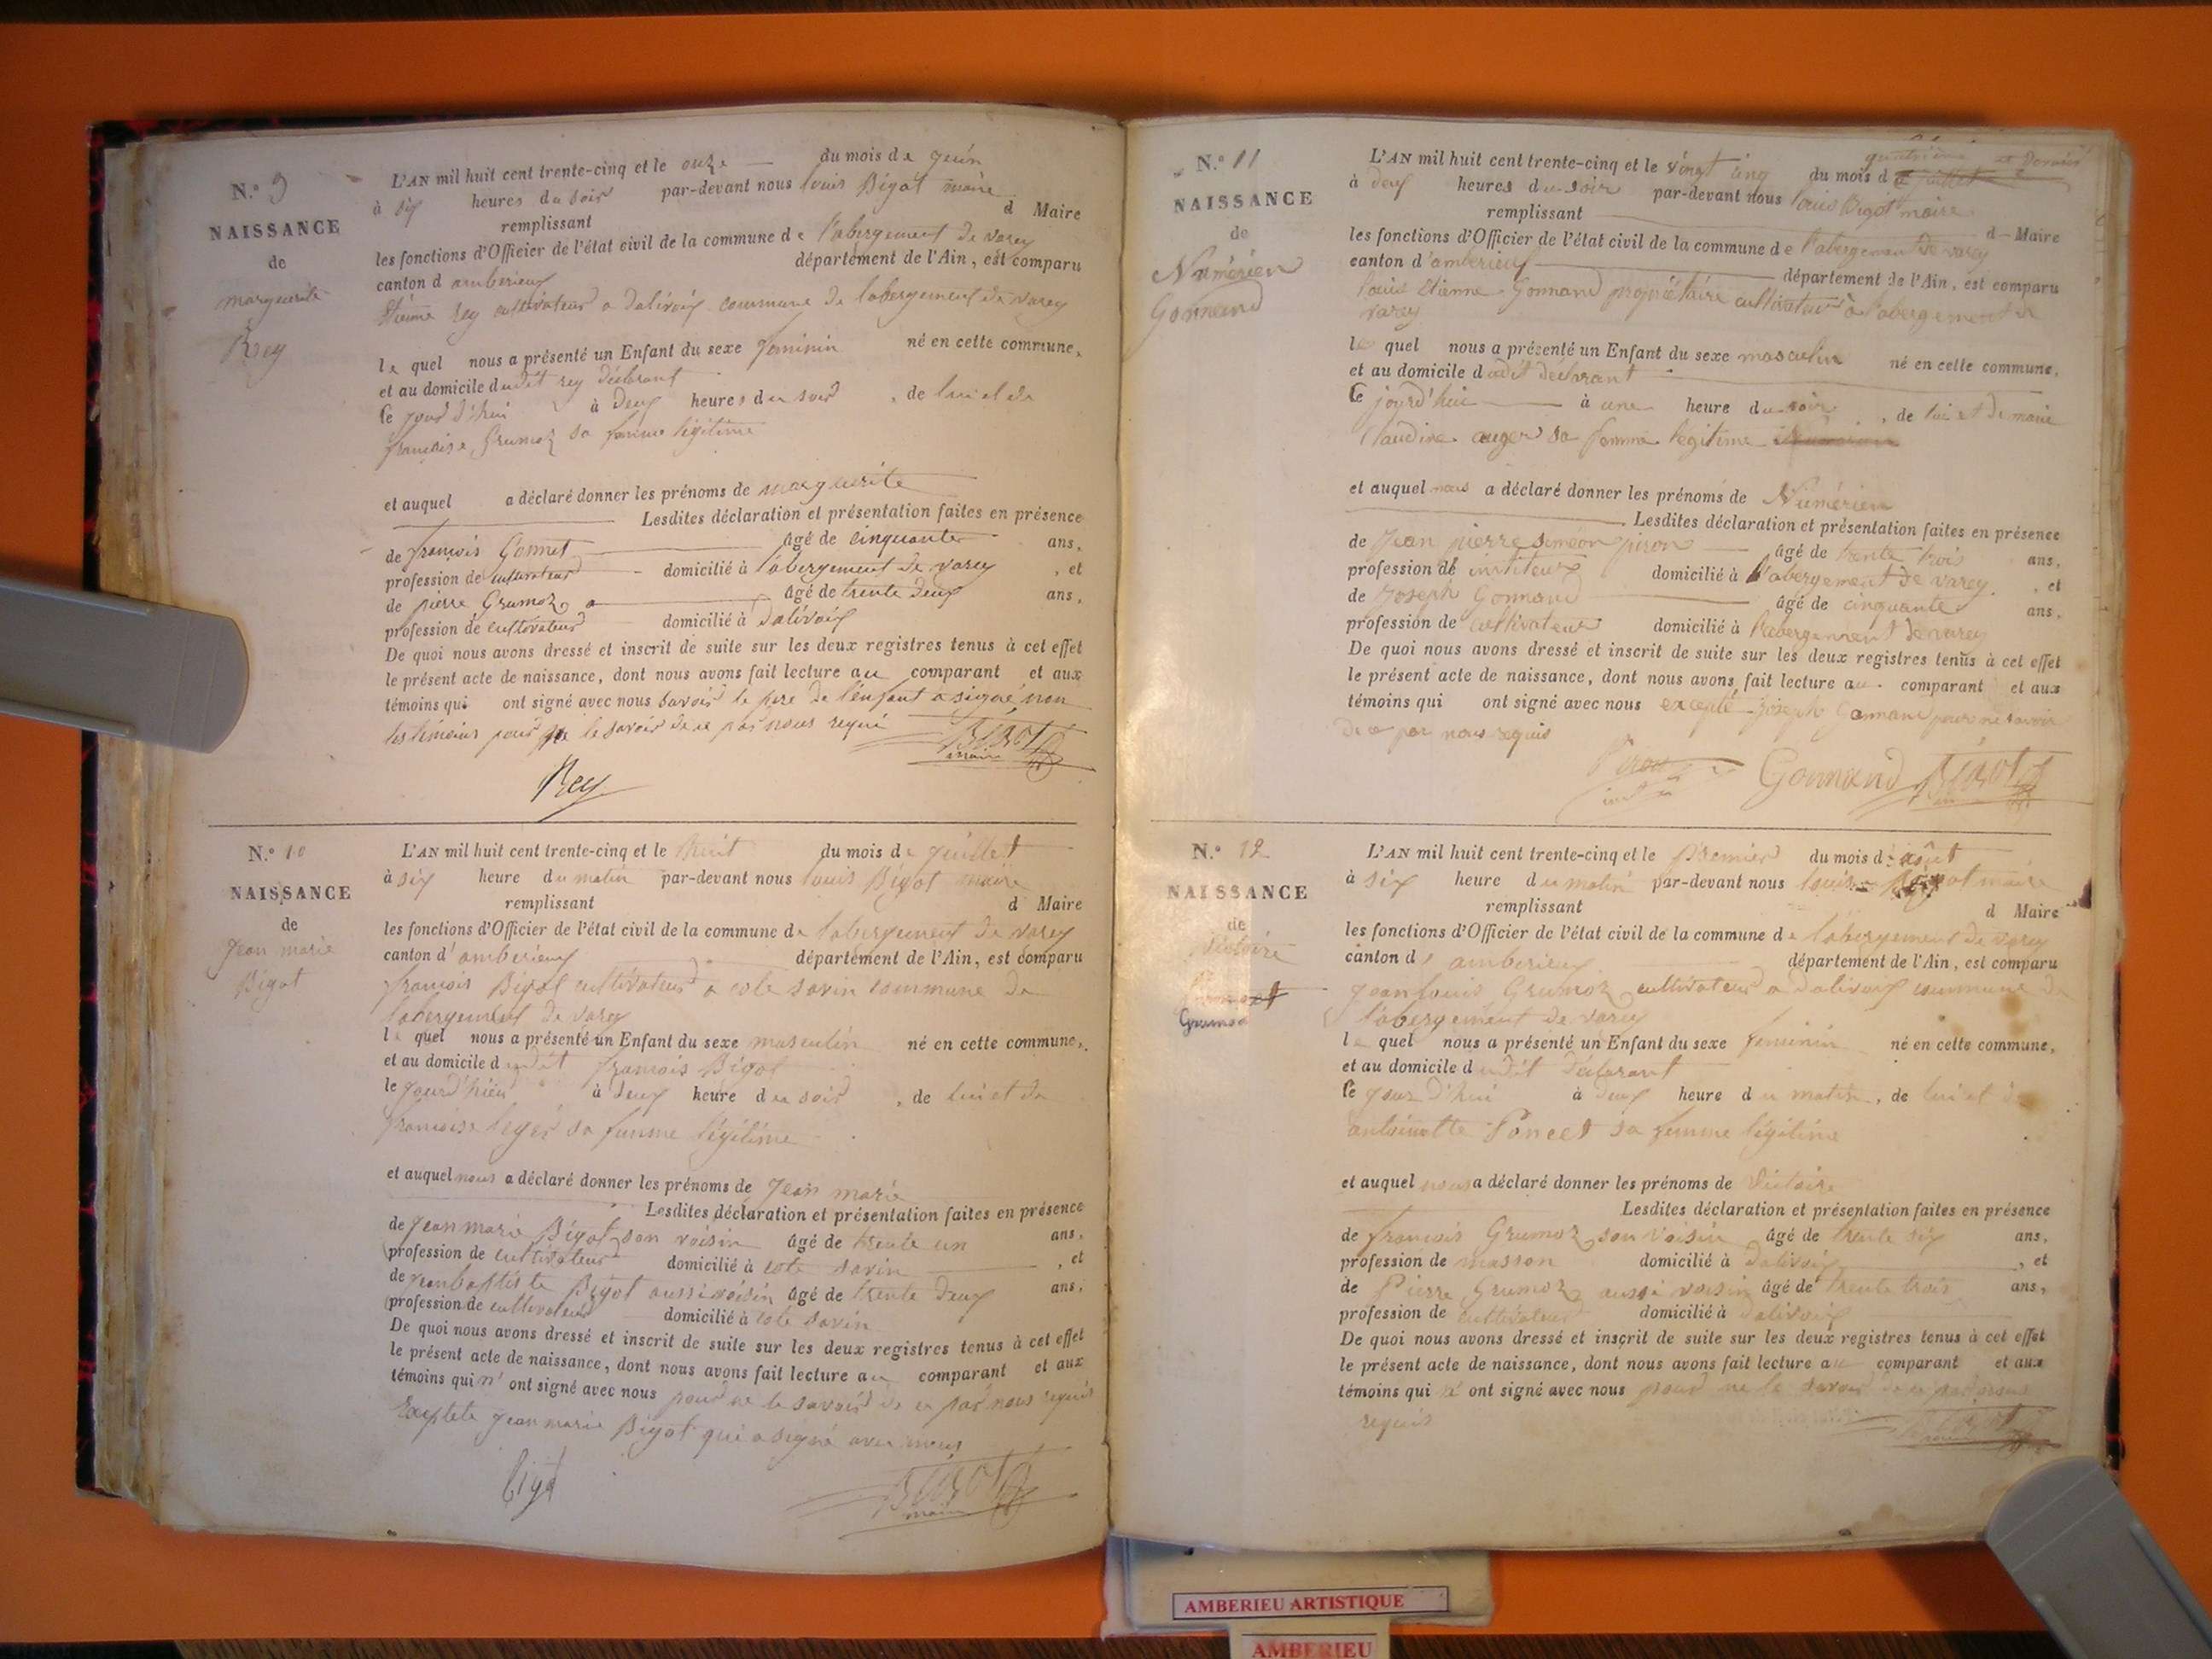 N.o 9
NAISSANCE
de
marguerite
Rey
L'AN mil huit cent trente-cinq et le onze du mois de juin
à six heures du soir par-devant nous louis Bigot maire
remplissant d Maire
les fonctions d'Officier de l'état civil de la commune de l'abergement de varey
canton d amberieux département de l'Ain, est comparu
Etienne rey cultivateur a dalivoix commune de labergement de varey
le quel nous a présenté un Enfant du sexe feminin né en cette commune,
et au domicile dudit rey déclarant
le jour d'hui à deux heures du soir, de lui et de
francoise Grumoz sa femme légitime
et auquel a déclaré donner les prénoms de marguerite
Lesdites déclaration et présentation faites en présence
de francois Gonnet âgé de cinquante ans,
profession de cultivateur domicilié à l'abergement de varey, et
de pierre Grumoz âgé de trente deux ans,
profession de cultivateur domicilié à dalivoix
De quoi nous avons dressé et inscrit de suite sur les deux registres tenus à cet effet
le présent acte de naissance, dont nous avons fait lecture au comparant et aux
témoins qui ont signé avec nous savoir le pere de l'enfant a signé non
les témoins pour ne le savoir de ce par nous requi
Bigot
maire
Rey
N.o 10
NAISSANCE
de
jean marie
Bigot
L'AN mil huit cent trente-cinq et le huit du mois de juillet
à six heure du matin par-devant nous louis Bigot maire
remplissant d Maire
les fonctions d'Officier de l'état civil de la commune de labergement de varey
canton d'amberieux département de l'Ain, est comparu
francois Bigot cultivateur a cote savin commune de
labergement de varey
le quel nous a présenté un Enfant du sexe masculin né en cette commune,
et au domicile dudit francois Bigot
le jourd'hier à deux heure du soir, de lui et de
francoise leger sa femme légitime
et auquel nous a déclaré donner les prénoms de jean marie
Lesdites déclaration et présentation faites en présence
de jean marie Bigot son voisin âgé de trente un ans,
profession de cultivateur domicilié à cote savin, et
de jean baptiste Bigot aussi voisin âgé de trente deux ans,
profession de cultivateur domicilié à cote savin
De quoi nous avons dressé et inscrit de suite sur les deux registres tenus à cet effet
le présent acte de naissance, dont nous avons fait lecture au comparant et aux
témoins qui n'ont signé avec nous pour ne le savoir de ce par nous requis
Exeptete jean marie Bigot qui a signé avec nous
bigot
Bigot
maire
N.o 11
NAISSANCE
de
Numérien
Gonnand
quatrième et dernier
L'AN mil huit cent trente-cinq et le vingt cinq du mois de juillet
à deux heures du soir par-devant nous louis Bigot maire
remplissant d Maire
les fonctions d'Officier de l'état civil de la commune de l'abergement de varey
canton d'amberieux département de l'Ain, est comparu
louis Etienne Gonnand propriétaire cultivateur à l'abergement de
varey
le quel nous a présenté un Enfant du sexe masculin né en cette commune,
et au domicile dudit déclarant
le jourd'hui à une heure du soir, de lui et de marie
Claudine auger sa femme légitime
et auquel nous a déclaré donner les prénoms de Numérien
Lesdites déclaration et présentation faites en présence
de Jean pierre siméon piron âgé de trente trois ans,
profession de instituteur domicilié à l'abergement de varey, et
de Joseph Gonnand âgé de cinquante ans,
profession de cultivateur domicilié à l'abergement de varey
De quoi nous avons dressé et inscrit de suite sur les deux registres tenus à cet effet
le présent acte de naissance, dont nous avons fait lecture au comparant et aux
témoins qui ont signé avec nous excepté Joseph Gonnand pour ne savoir
de ce par nous requis
Piron Gonnand Bigot
N.o 12
NAISSANCE
de
victoire
Grumoz
L'AN mil huit cent trente-cinq et le premier du mois d'août
à six heure du matin par-devant nous louis Bigot maire
remplissant d Maire
les fonctions d'Officier de l'état civil de la commune de l'abergement de varey
canton d'amberieux département de l'Ain, est comparu
jean louis Grumoz cultivateur a dalivoix commune de
l'abergement de varey
le quel nous a présenté un Enfant du sexe feminin né en cette commune,
et au domicile dudit déclarant
le jour d'hui à deux heure du matin, de lui et de
antoinette Poncet sa femme légitime
et auquel nous a déclaré donner les prénoms de victoire
Lesdites déclaration et présentation faites en présence
de francois Grumoz son voisin âgé de trente six ans,
profession de masson domicilié à dalivoix, et
de Pierre Grumoz aussi voisin âgé de trente trois ans,
profession de cultivateur domicilié à dalivoix
De quoi nous avons dressé et inscrit de suite sur les deux registres tenus à cet effet
le présent acte de naissance, dont nous avons fait lecture au comparant et aux
témoins qui n'ont signé avec nous pour ne le savoir de ce par nous
requis
Bigot
AMBERIEU ARTISTIQUE
AMBERIEU